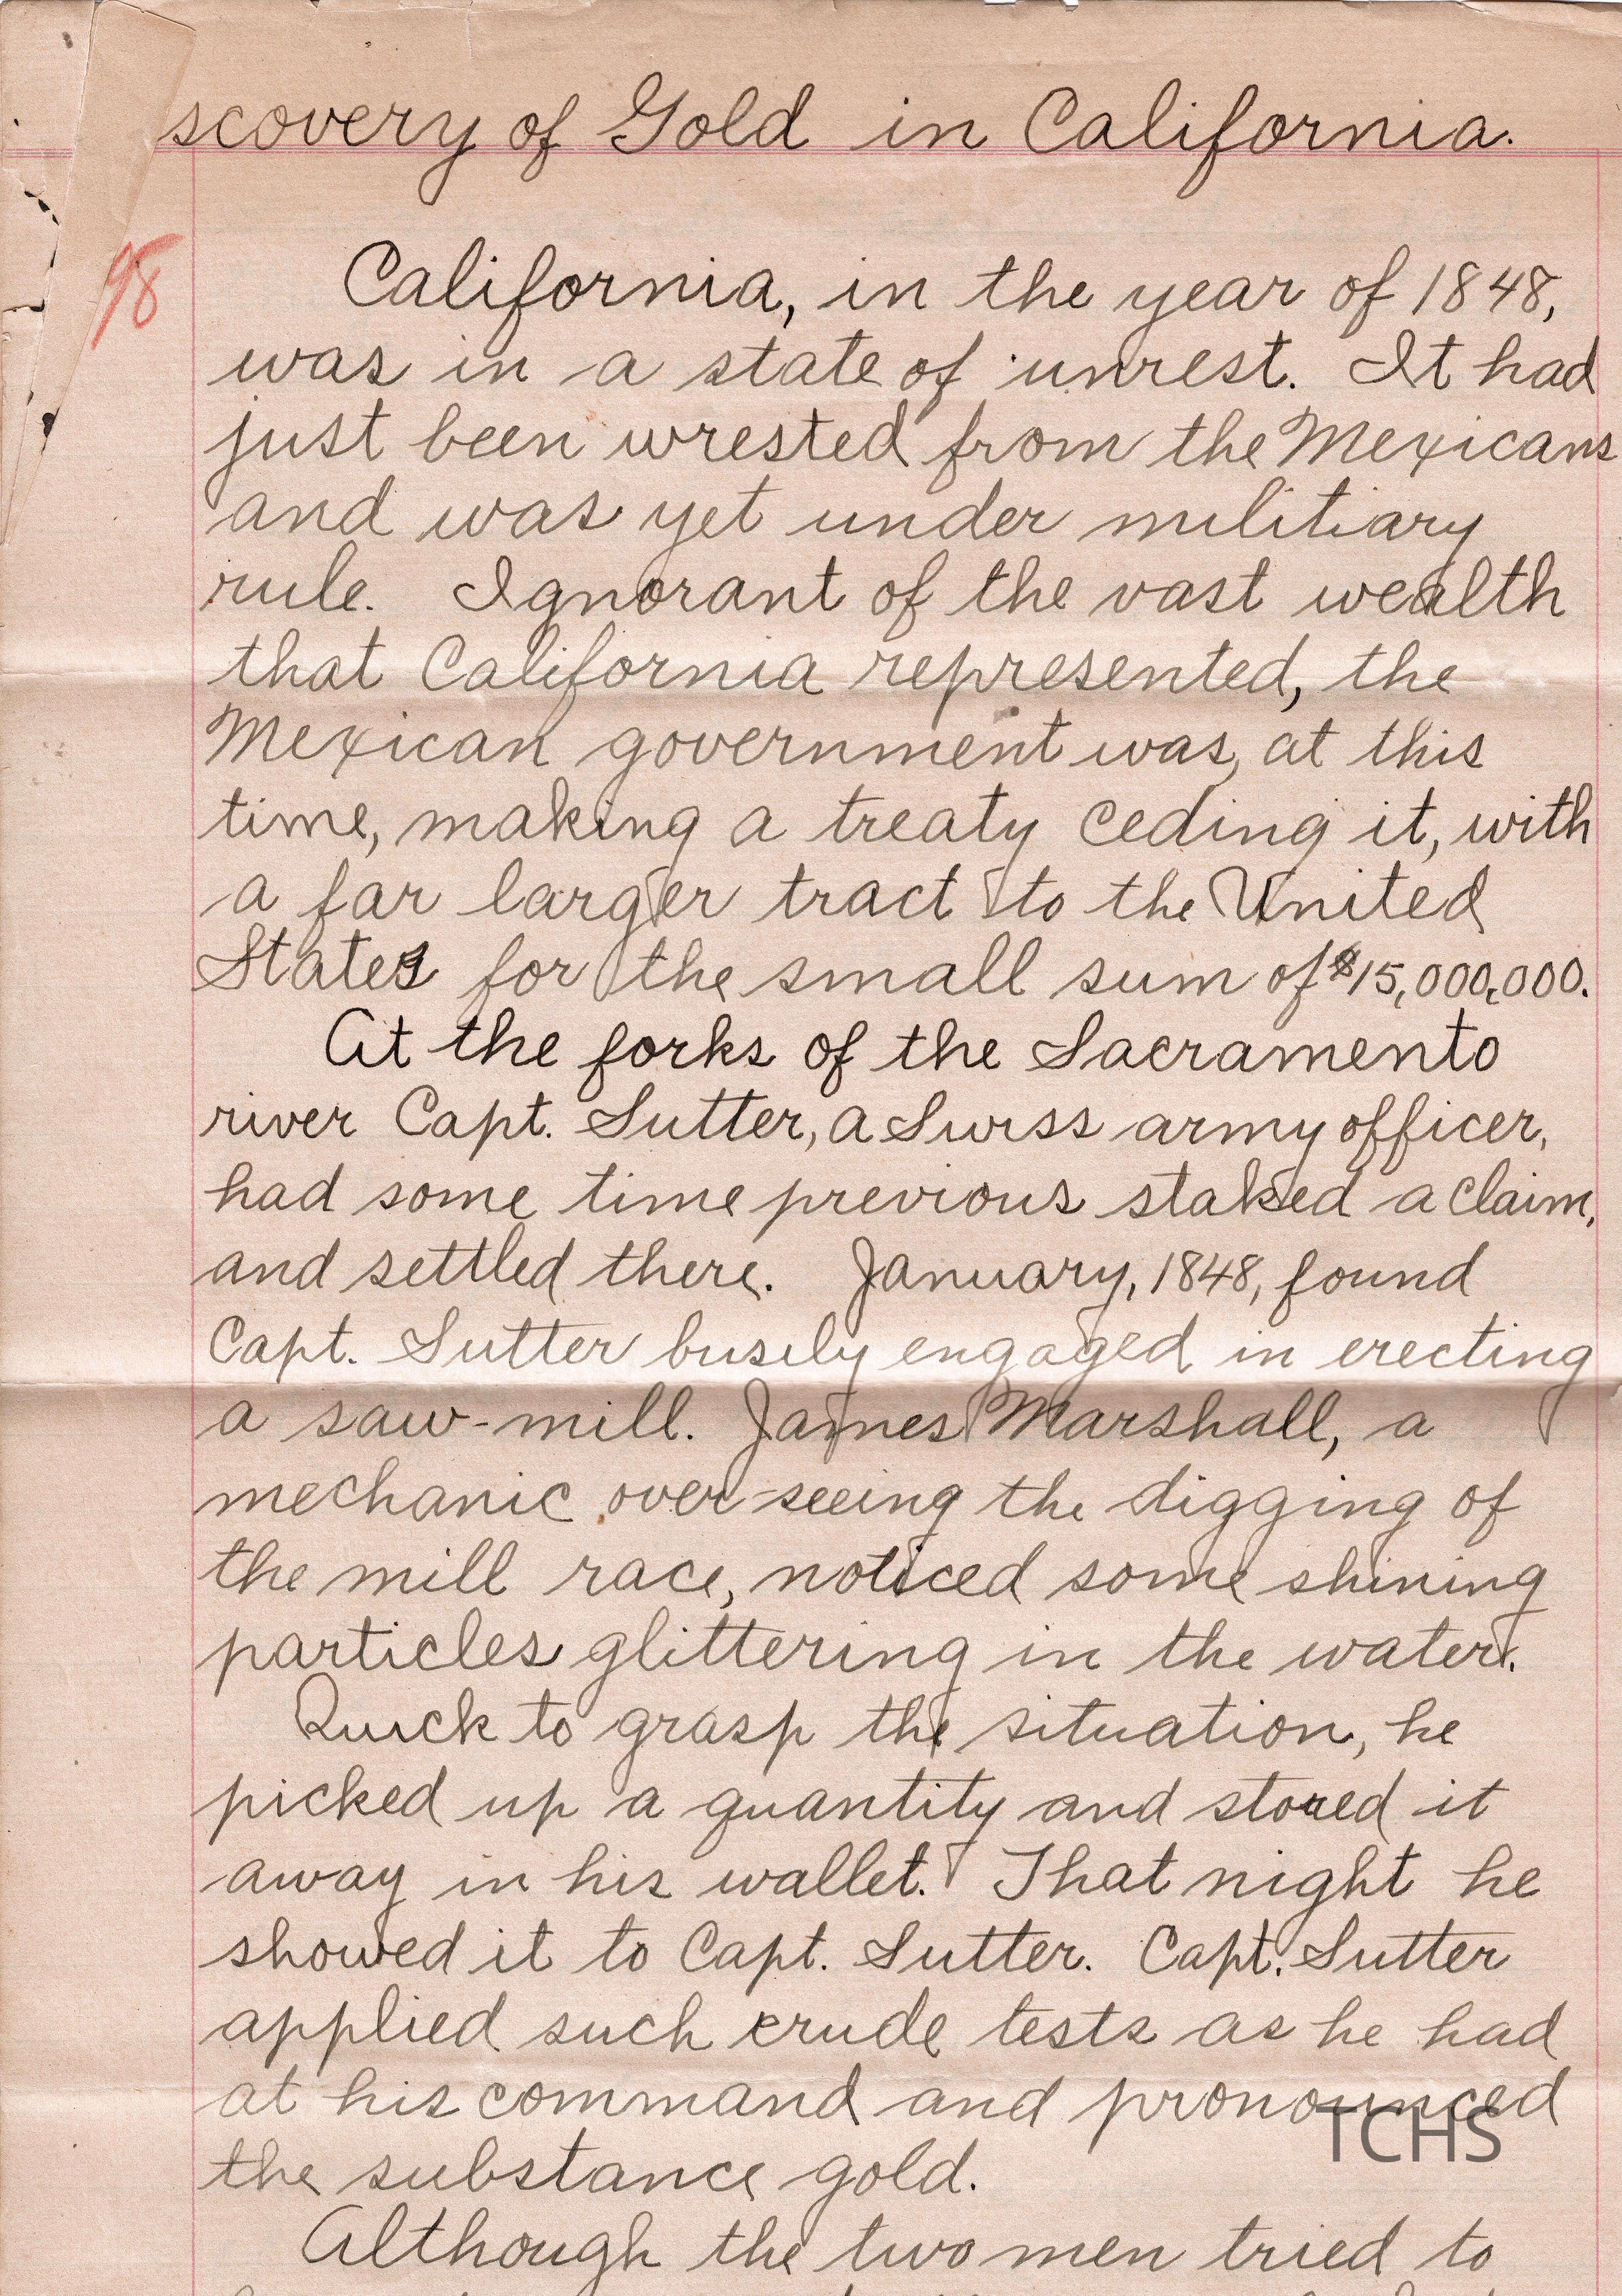 scovery of Gold in California.
98
California, in the year of 1848,
was in a state of unrest. It had
just been wrested from the Mexicans
and was yet under militiary
rule. Ignorant of the vast wealth
that California represented, the
Mexican government was, at this
time, making a treaty ceding it, with
a far larger tract to the United
States for the small sum of $15,000,000.
At the forks of the Sacramento
river Capt. Sutter, a Swiss army officer,
had some time previous staked a claim,
and settled there. January, 1848, found
Capt. Sutter busily engaged in erecting
a saw-mill. James Marshall, a
mechanic over-seeing the digging of
the mill race, noticed some shining
particles glittering in the water.
Quick to grasp the situation, he
picked up a quantity and stored it
away in his wallet. That night he
showed it to Capt. Sutter. Capt. Sutter
applied such crude tests as he had
at his command and pronounced
TCHS
the substance gold.
Although the two men tried to